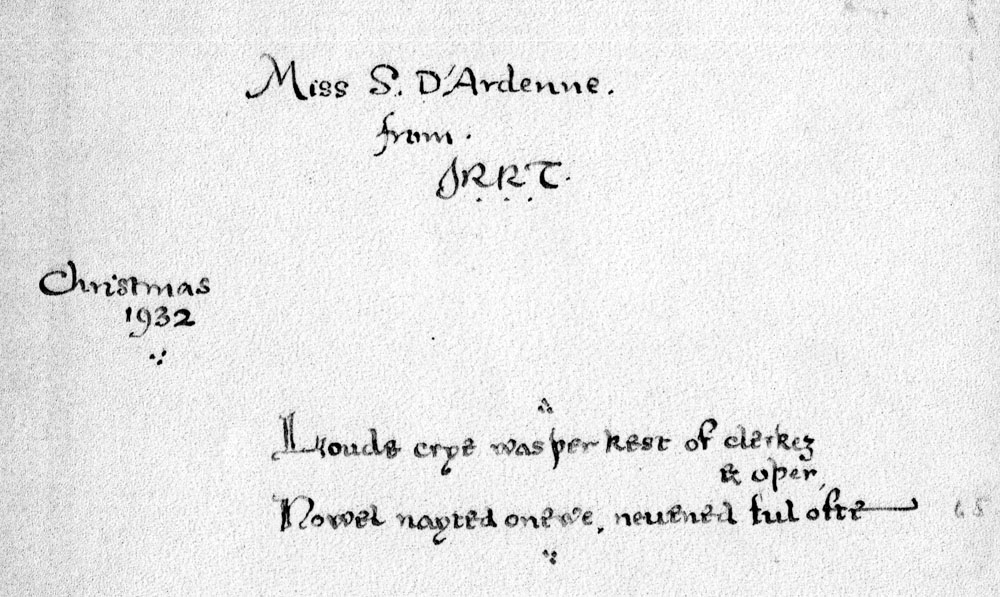 Miss S. D'Ardenne.
from.
JRRT.
Christmas
1932
Loude crye was þer kest of clerkez
& oþer,
Nowel nayted onewe, neuened ful ofte
65